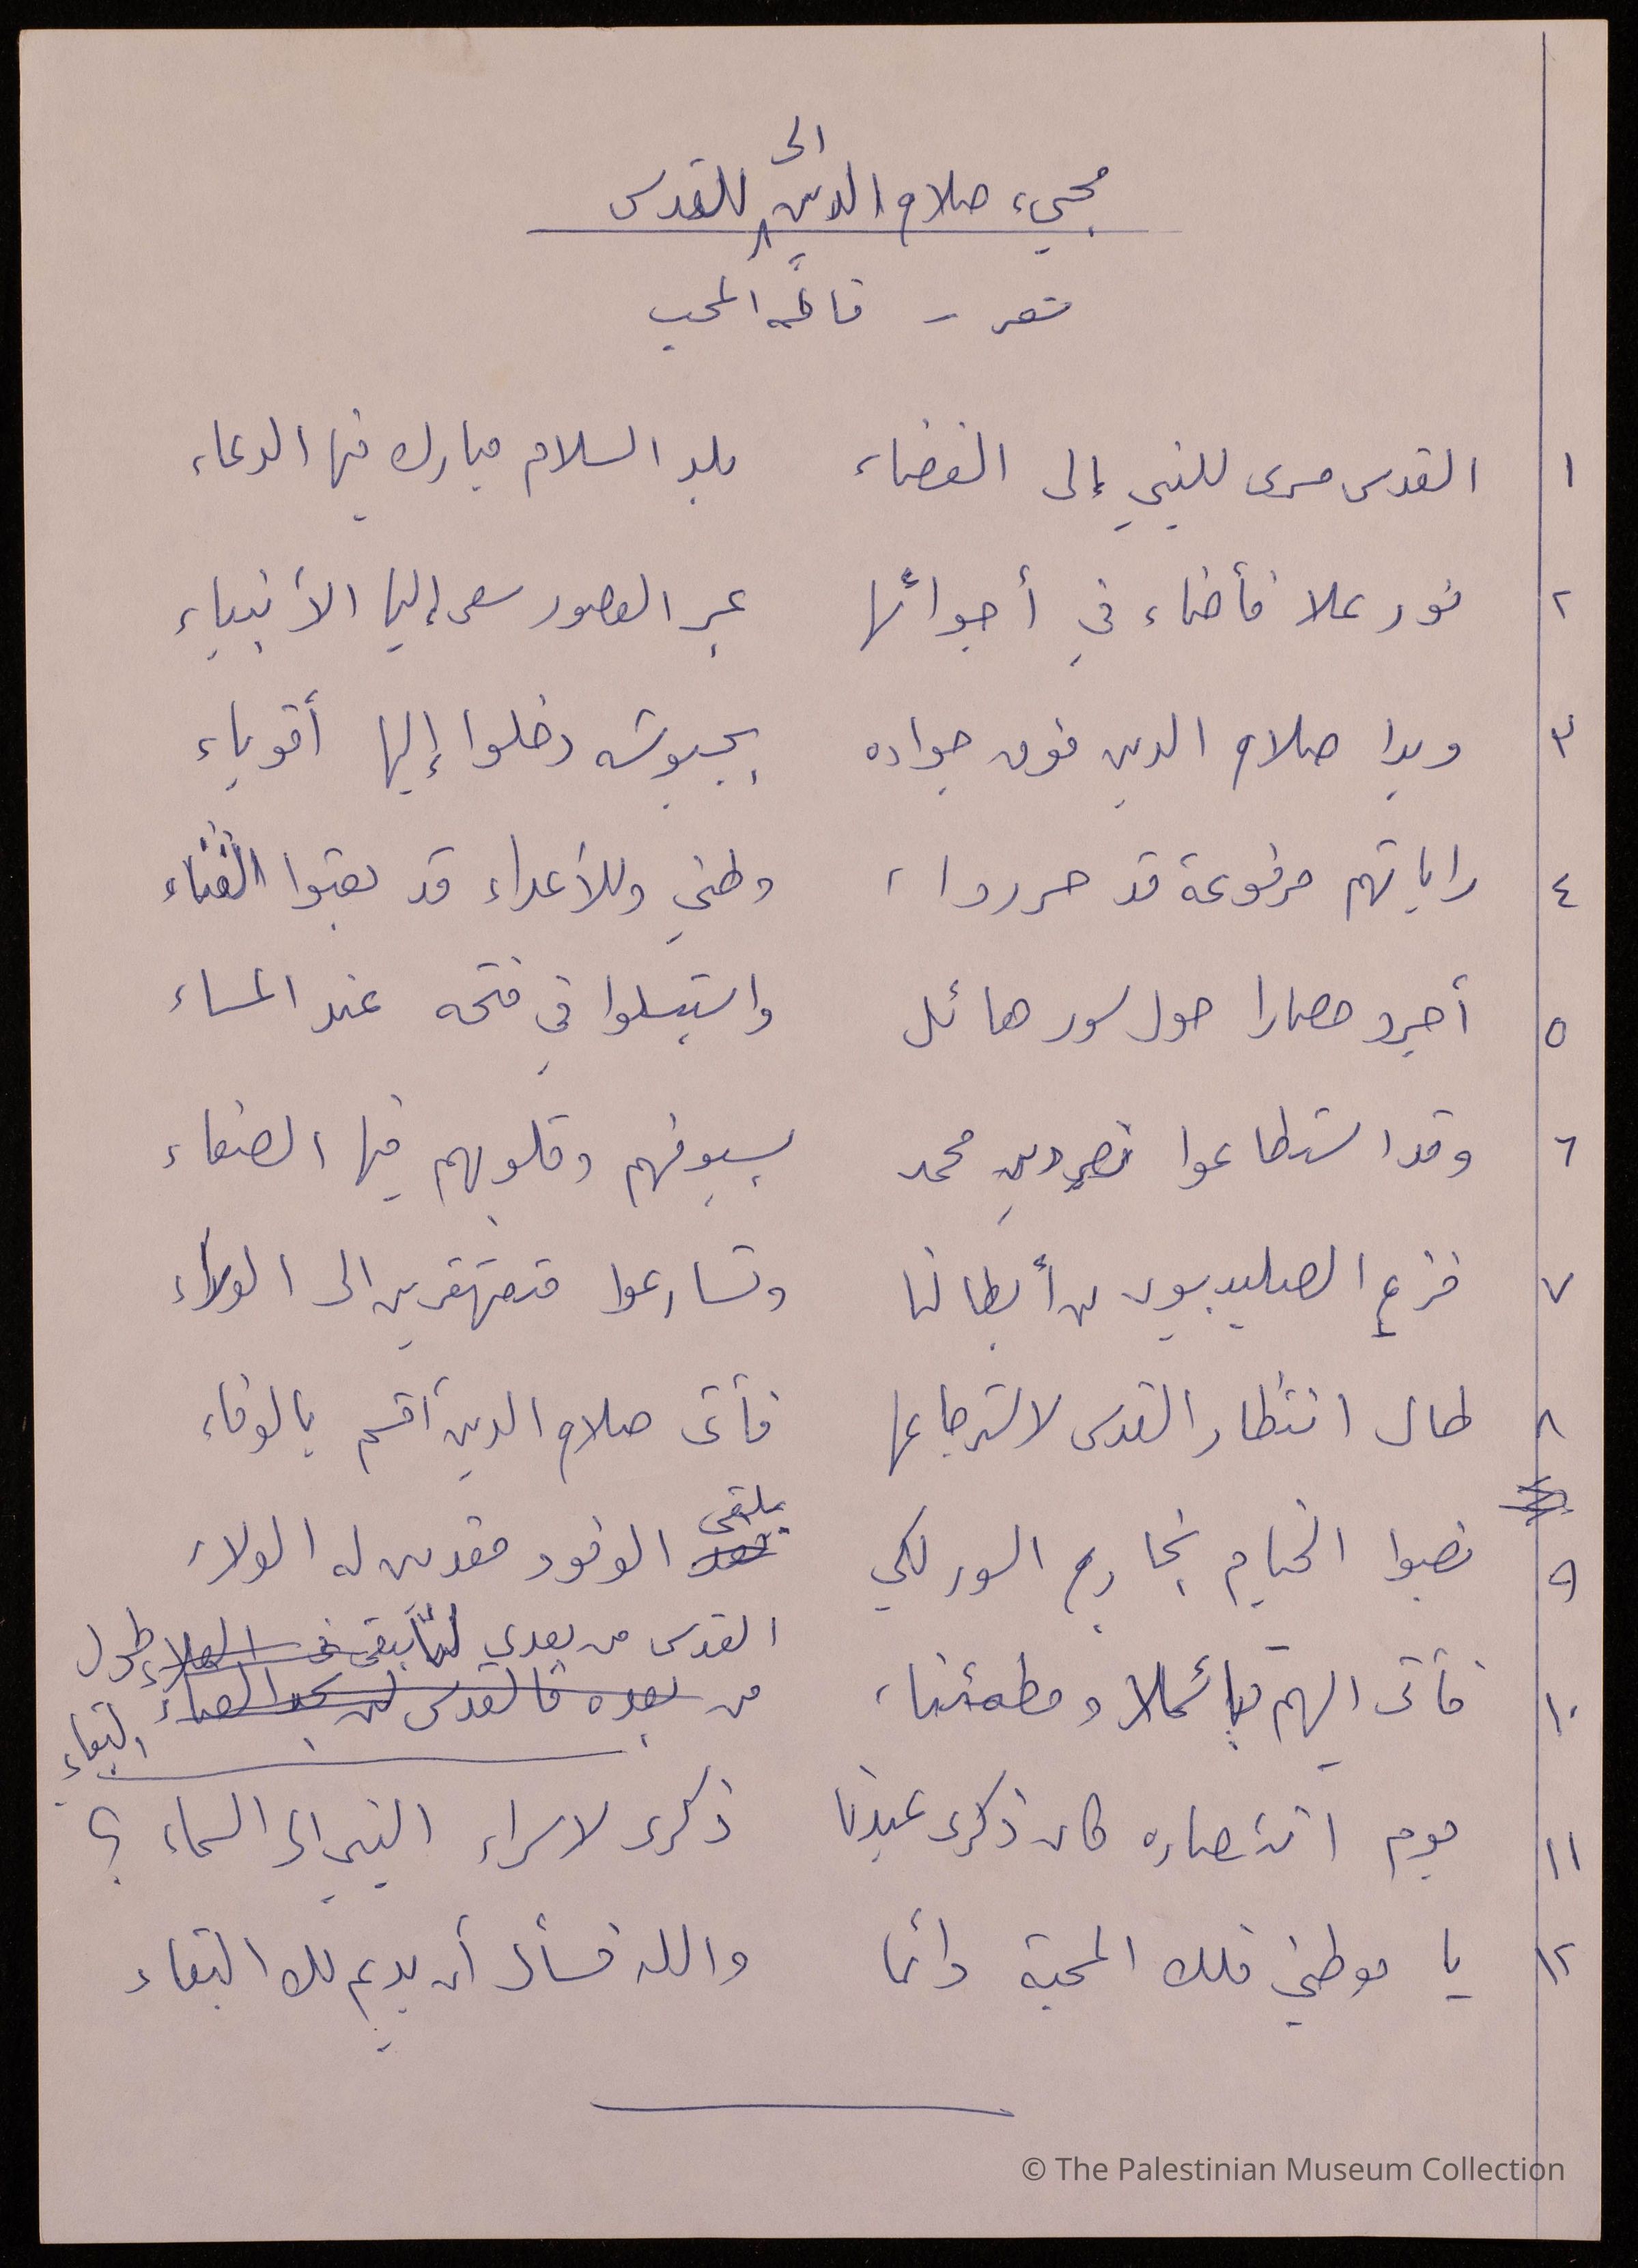 مجيء صلاح الدين الى للقدس
شعر - فاطمة المحب
١ القدس مسرى للنبي إلى الفضاء بلد السلام مبارك فيها الدعاء
٢ نور علا فأضاء في أجوائها عبر العصور سعى إليها الأنبياء
٣ وبدا صلاح الدين فوق جواده بجيوشه دخلوا إليها أقوياء
٤ راياتهم مرفوعة قد حرروا، وطني وللأعداء قد بقوا الفناء
٥ أجرو حصارا حول سور هائل واستبسلوا في فتحه عند المساء
٦ وقد استطاعوا نصر دين محمد بسيوفهم وقلوبهم فيها الصفاء
٧ فزع الصليبيون من أبطالنا وتسارعوا متقهقرين الى الوراء
٨ طال انتظار القدس لاسترجاعها فأتى صلاح الدين أقسم بالوفاء
٩ نصبوا الخيام بخارج السور لكي يلقى الوفود مقدمين له الولاء
القدس من بعدي لها يبقى في العلاء طول البقاء
١٠ فأتى اليهم قائلا ومطمئنا، من بعده فالقدس لن
١١ يوم انتصاره كان ذكرى عيدنا ذكرى لاسراء النبي الى السماء ؟
١٢ يا موطني فلك المحبة دائما والله نسأل أن يديم لك البقاء
© The Palestinian Museum Collection